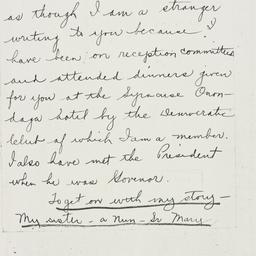 as though I am a stranger
writing to you because I
have been on reception committees
and attended dinners given
for you at the Syracuse Onon-
daga hotel by the Democratic
Club of which I am a member.
I also have met the President
when he was Govenor.
To get on with my story -
My sister - a Nun - Sr Mary